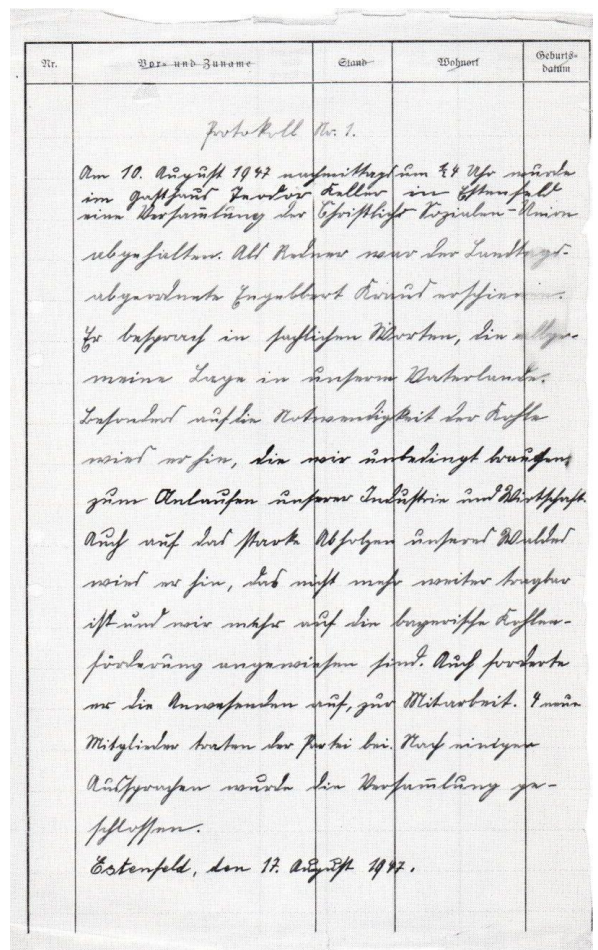 Nr. Vor- und Zuname Stand Wohnort Geburts-
datum
Protokoll Nr. 1.
Am 10. August 1947 nachmittags um ½4 Uhr wurde
im Gasthaus Teodor Keller in Estenfeld
eine Versam̅lung der Christlichs Sozialen-Union
abgehalten. Als Redner war der Landtags-
abgeordnete Engelbbert Kraus erschienen.
Er besprach in sachlichen Worten, die allge-
meine Lage in unserm Vaterlande.
Besonders auf die Notwendigkeit der Kohle
wies er hin, die wir unbedingt brauchen,
zum Anlaufen unserer Industrie und Wirtschaft.
Auch auf das starke Abholzen unseres Waldes
wies er hin, das nicht mehr weiter tragbar
ist und wir mehr auf die bayerische Kohlen-
förderung angewiesen sind. Auch forderte
er die Anwesenden auf, zur Mitarbeit. 4 neue
Mitglieder traten der Partei bei. Nach einigen
Aussprachen wurde die Versam̅lung ge-
schlossen.
Estenfeld, den 17. August 1947.